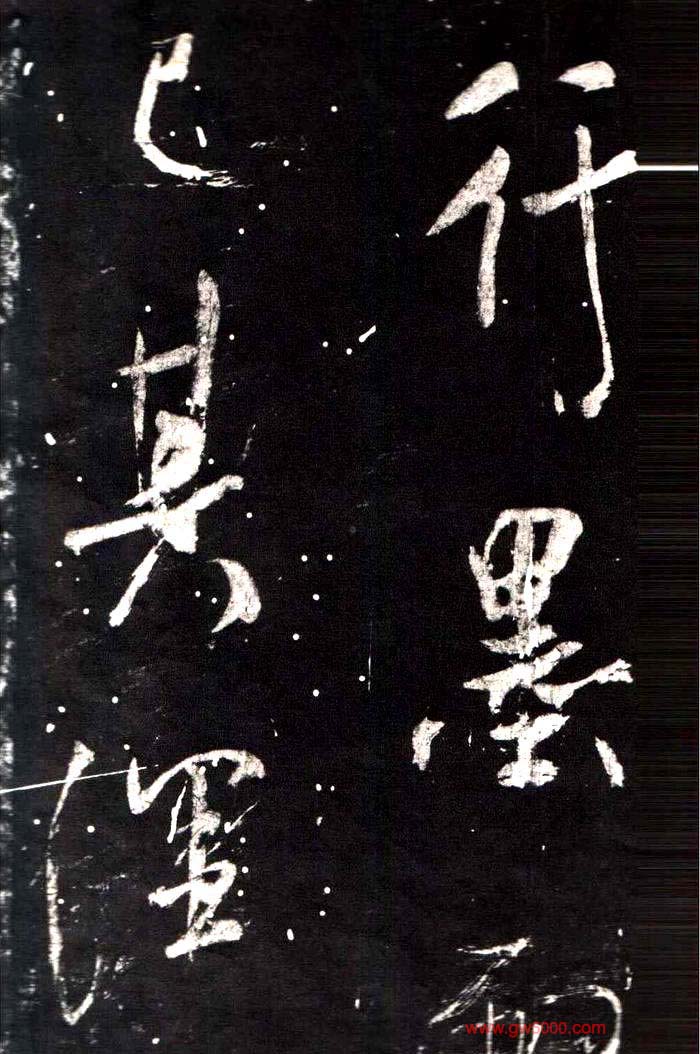 行墨而
已其渾
www.gw5000.com